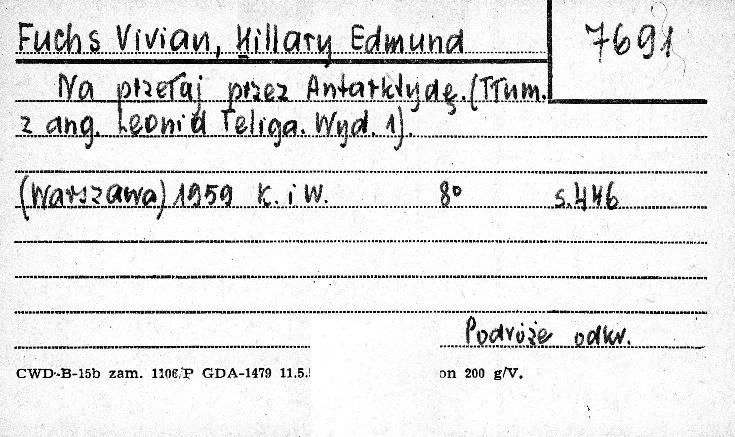 Fuchs Vivian, Hillary Edmund
7691
Na przełaj przez Antarktydę. (Tłum.
z ang. Leonid Teliga. Wyd. 1).
(Warszawa) 1959 K. i W. 8° s. 446
Podróże odkr.
CWD-B-15b zam. 1106/P GDA-1479 11.5. on 200 g/V.